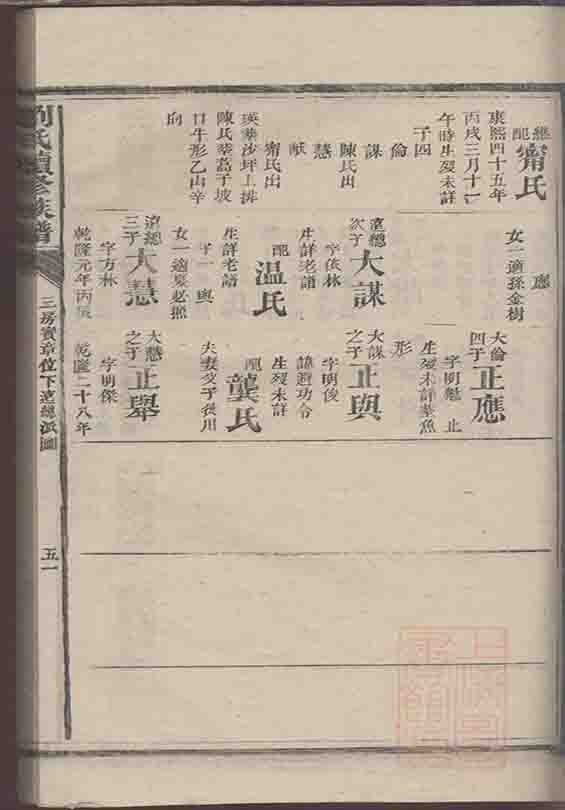 繼配甯氏
康熙四十五年
丙戌三月十二
午時生歿未詳
子四
倫
謀 陳氏出
慧
猷 甯氏出
瑛葬沙坪上排
陳氏葬葛子坡
口牛形乙山辛
向
應
女二適孫金樹
遠總次子大謀
字俊林
生詳老譜
配温氏
生詳老譜
子一 與
女一適夏必照
遠總三子大慧
字方林
乾隆元年丙辰
大倫四子正應
字明魁 止
生歿未詳葬魚
形
大謀之子正與
字明俊
諱遊功令
生歿未詳
配龔氏
夫妻父子從川
大慧之子正舉
字明傑
乾隆二十八年
劉氏續修族譜
三房實章位下遠總派圖
五一